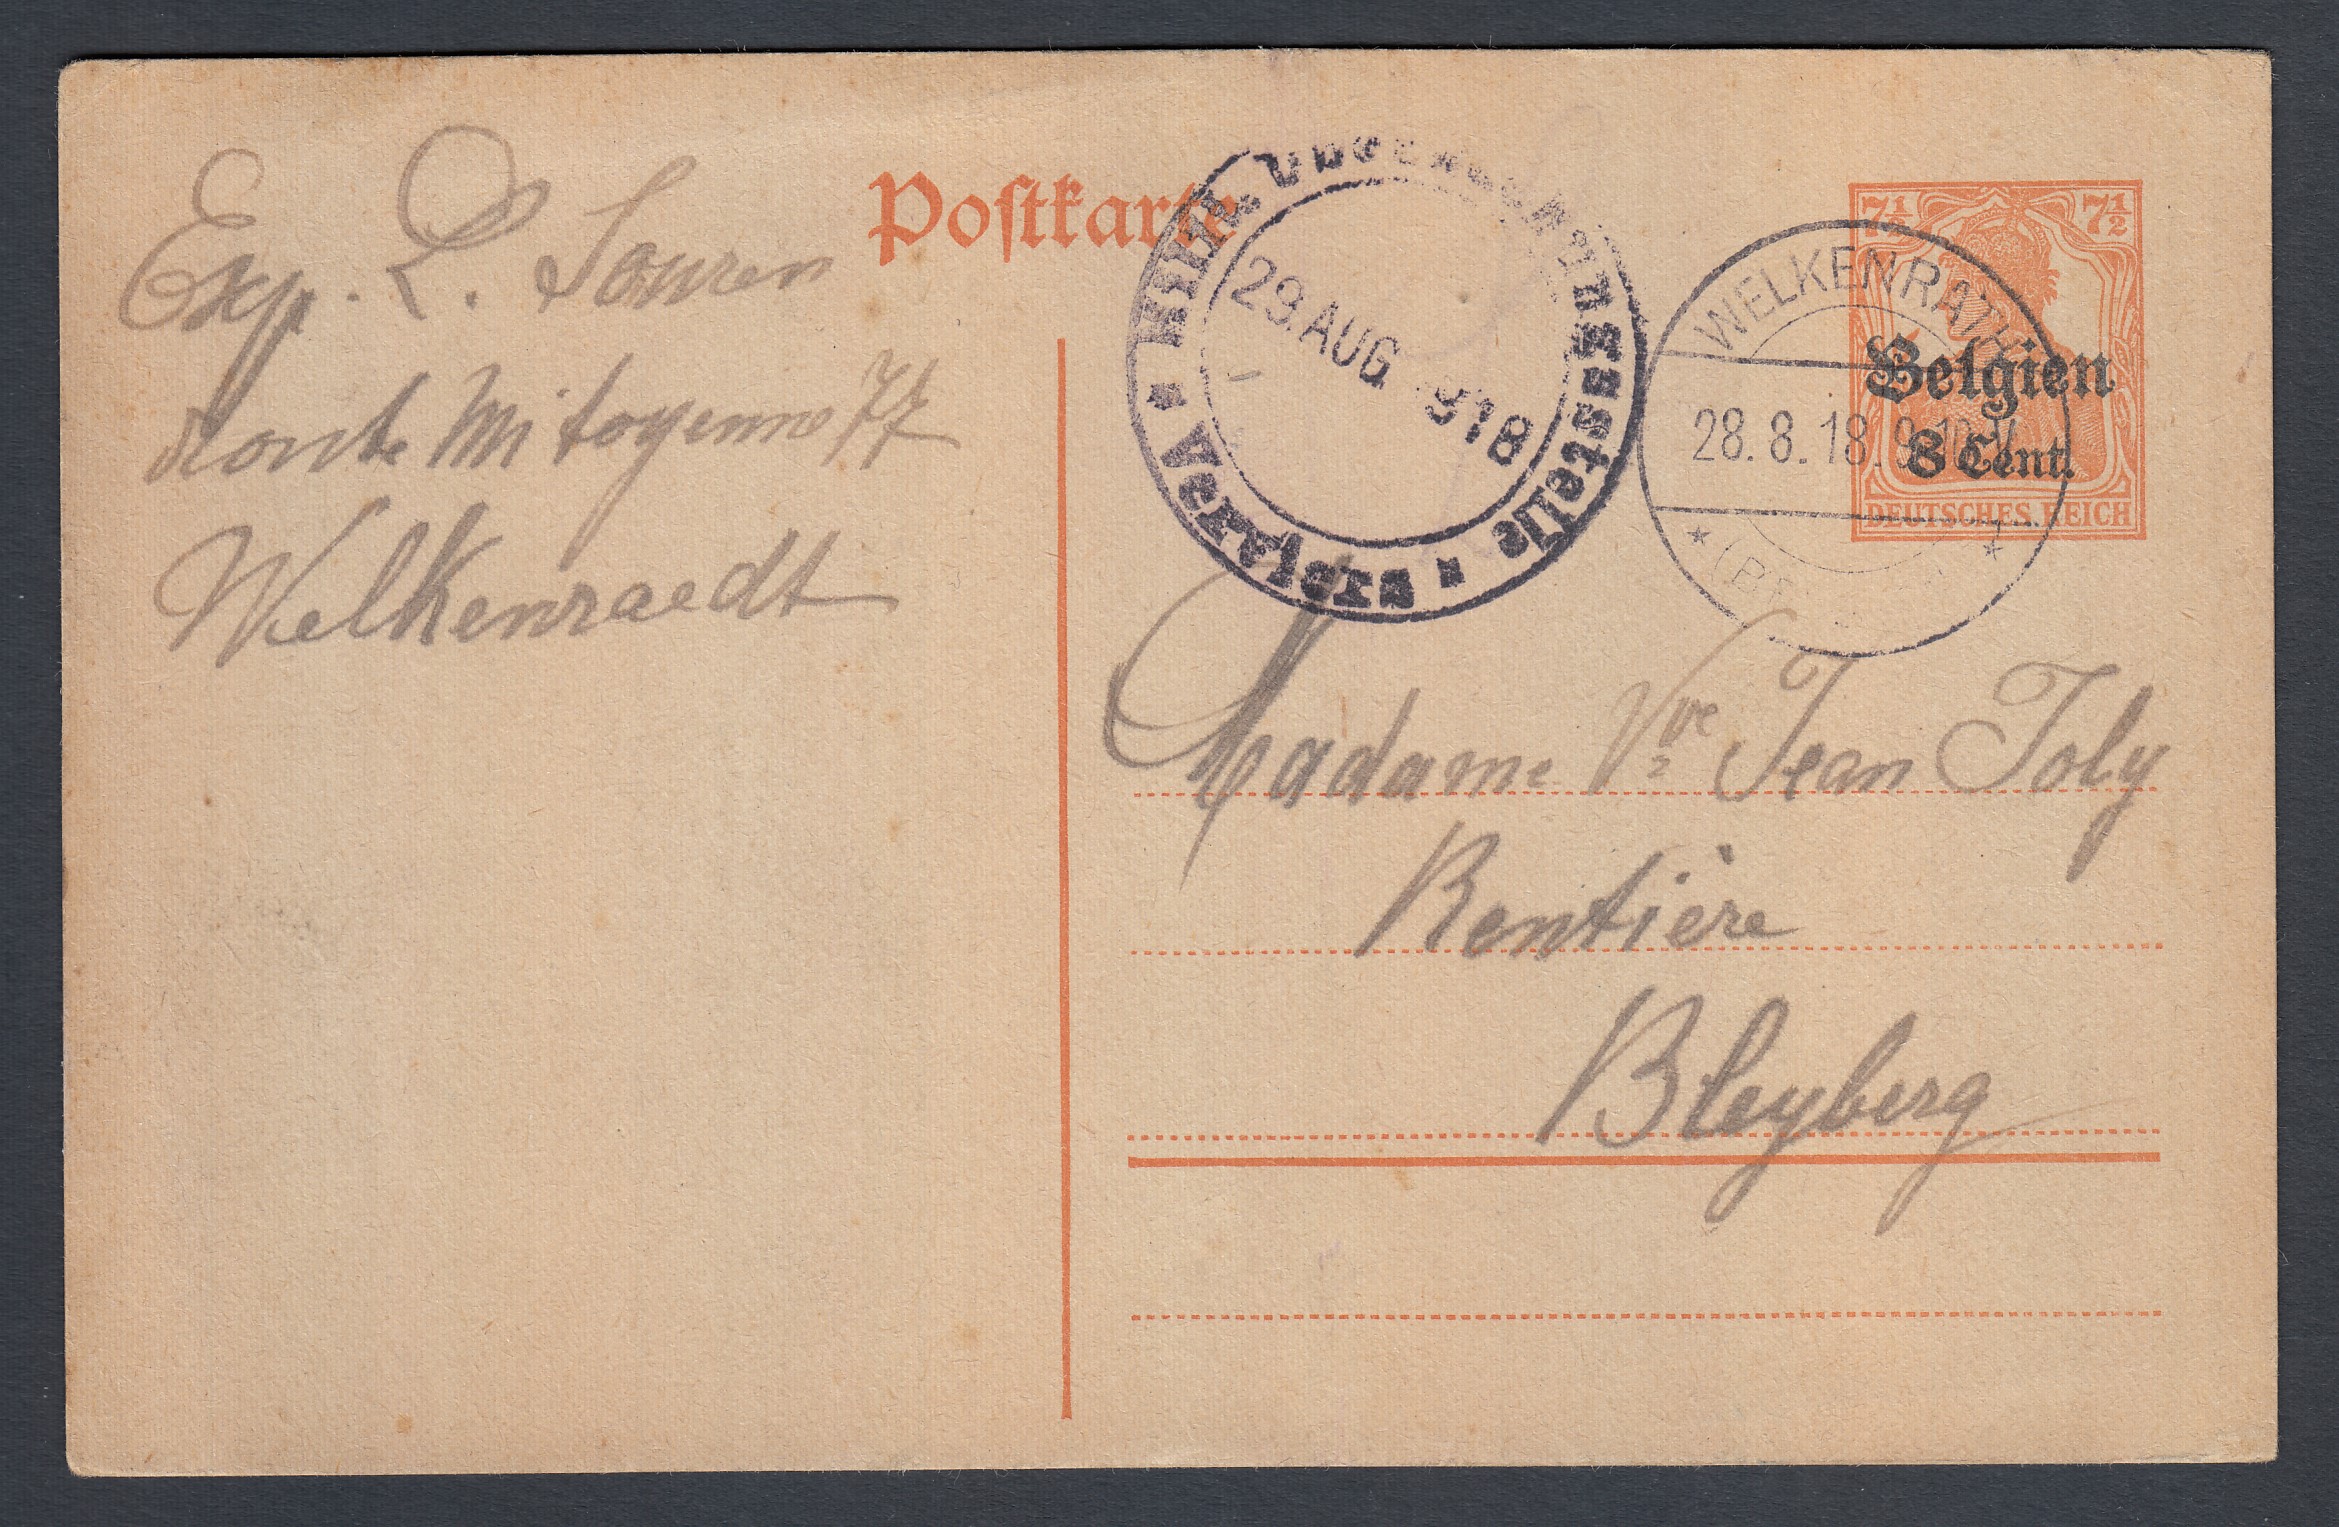 Exp. L. Souren
Route Mitoyenne 77
Welkenraedt
Postkarte
Milit. Überwachungsstelle
★ Verviers ▪
29. AUG 1918
WELKENRATH
28.8.18. 9-10 V
7½ 7½
Belgien
8 Cent.
DEUTSCHES REICH
Madame Vve Jean Joly
Rentière
Bleyberg